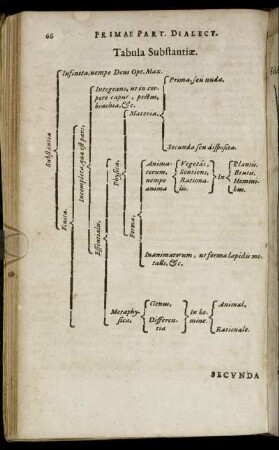 66 PRIMAE PART. DIALECT.
Tabula Substantiæ.
Substantia
Infinita, nempe Deus Opt. Max.
Finita.
Incompleta, quæ est pars,
Integrans, ut in cor-
pore caput, pectus,
brachia, &c.
Essentialis,
Physica,
Materia,
Prima, seu nuda.
Secunda seu disposita.
Forma,
Anima-
torum,
nempe
anima
Vegetās,
Sentiens,
Rationa-
lis.
In
Plantis.
Brutis.
Homini-
bus.
Inanimatorum, ut forma lapidis me-
talli, &c.
Metaphy-
sica,
Genus,
Differen-
tia
In ho-
mine.
Animal,
Rationale.
SECVNDA